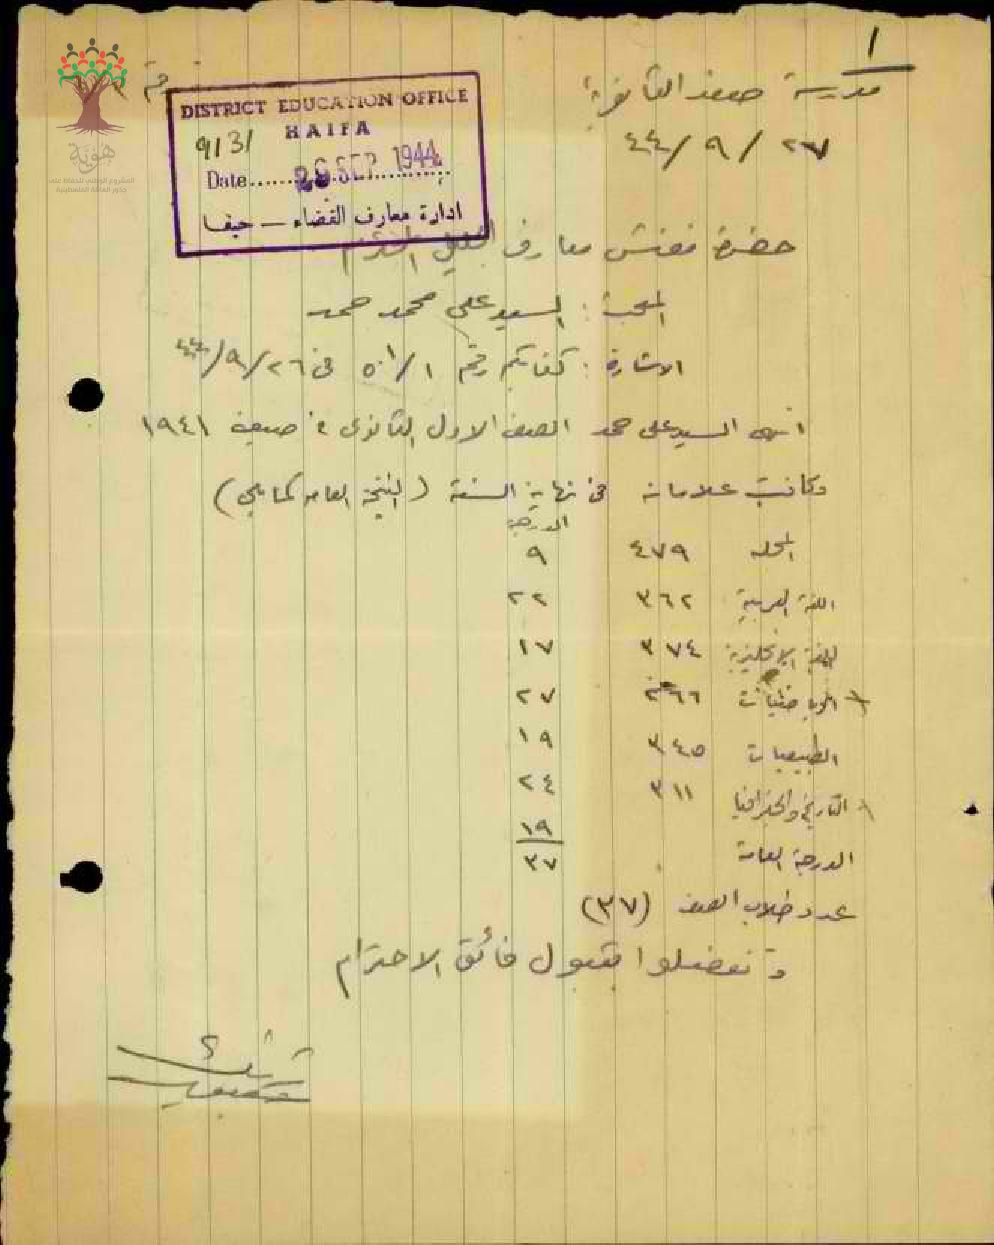 ١
مدرسة صفد الثانوية
رقم
٢٧ / ٩ / ٤٤
DISTRICT EDUCATION OFFICE
HAIFA
9131
Date.....26 SEP 1944.....
ادارة معارف القضاء — حيفا
هوية
حضرة مفتش معارف الجليل المحترم
المبحث : السيد علي محمد حمد
الاشارة : كتابكم رقم ٥٠١/١ في ٢٦/٩/٤٤
انهى السيد علي حمد الصف الاول الثانوي في صيف ١٩٤١
وكانت علاماته في نهاية السنة (النتيجة العامة كما يلي)
الدرجة
٤٧٩ ٩
اللغة العربية ٣٦٢ ٢٢
اللغة الانكليزية ٣٧٤ ١٧
الرياضيات ٢٦٦ ٢٧
الطبيعيات ٣٤٥ ١٩
التاريخ والجغرافيا ٣١١ ٢٤
الدرجة العامة ١٩
٣٧
عدد طلاب الصف (٣٧)
وتفضلوا بقبول فائق الاحترام